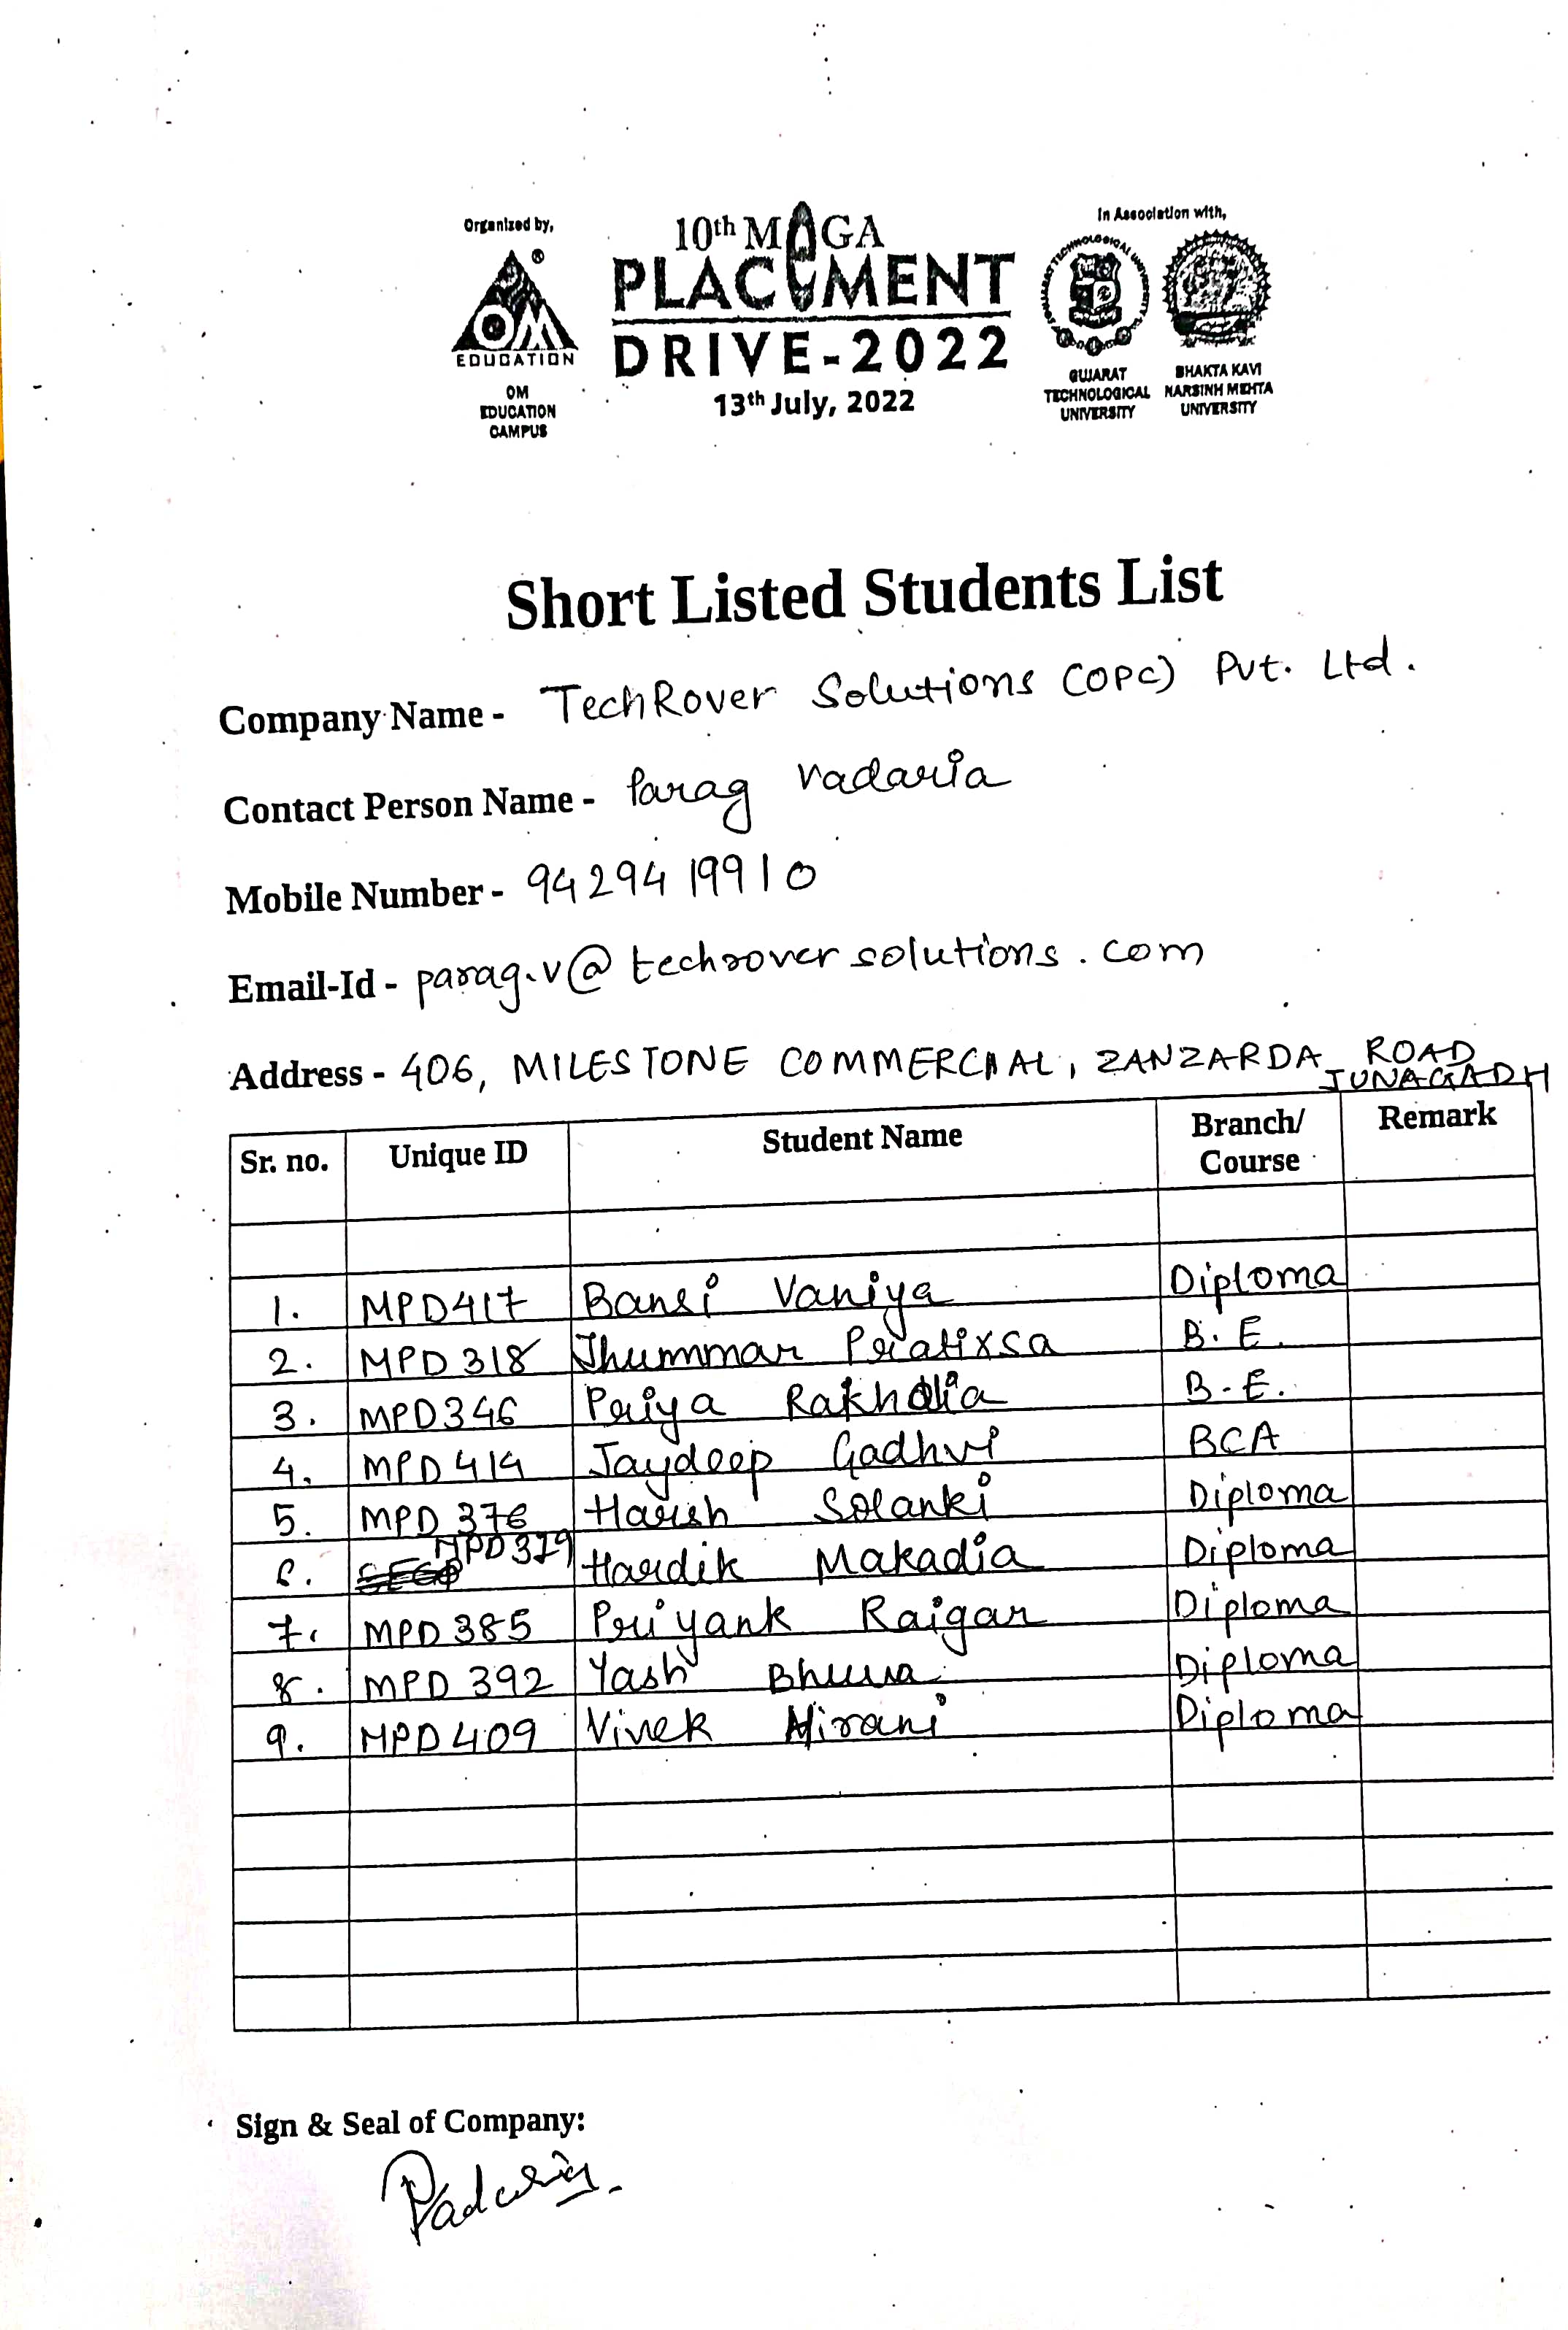 Organized by,
10th MEGA
In Association with,
PLACEMENT
OM
EDUCATION
DRIVE-2022
OM
EDUCATION
CAMPUS
13th July, 2022
GUJARAT
TECHNOLOGICAL
UNIVERSITY
BHAKTA KAVI
NARSINH MEHTA
UNIVERSITY
Short Listed Students List
Company Name - TechRover Solutions (OPC) Pvt. Ltd.
Contact Person Name - Parag Vadaria
Mobile Number - 9429419910
Email-Id - parag.v@techroversolutions.com
Address - 406, MILESTONE COMMERCIAL, ZANZARDA ROAD
JUNAGADH
Sr. no. Unique ID Student Name Branch/ Course Remark
1. MPD417 Bansi Vaniya Diploma
2. MPD318 Jhummar Pratixsa B.E.
3. MPD346 Priya Rakholia B.E.
4. MPD414 Jaydeep Gadhvi BCA
5. MPD376 Harsh Solanki Diploma
6. MPD379 Hardik Makadia Diploma
7. MPD385 Priyank Raigar Diploma
8. MPD392 Yash Bhuva Diploma
9. MPD409 Vivek Hirani Diploma
Sign & Seal of Company: